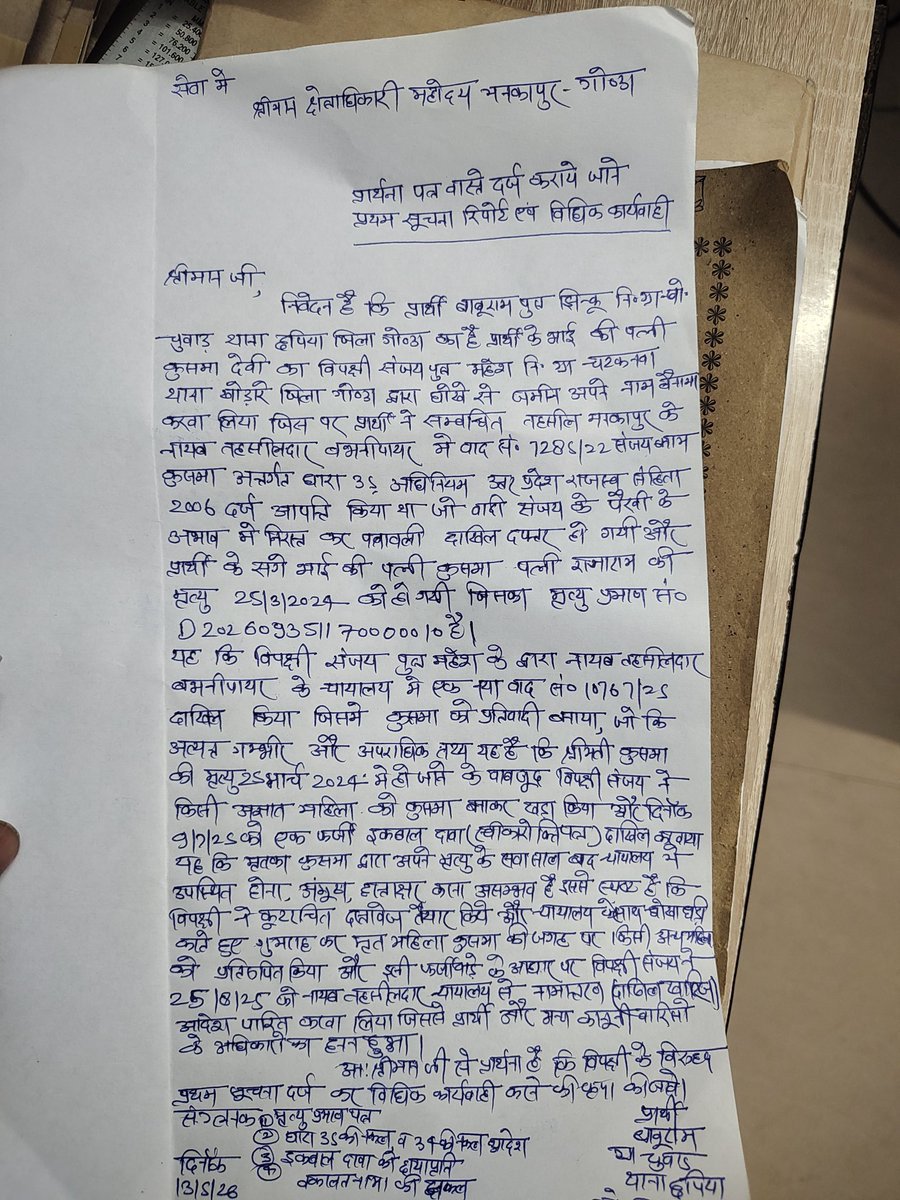 सेवा मे
श्रीमान क्षेत्राधिकारी महोदय मनकापुर - गोण्डा
प्रार्थना पत्र वास्ते दर्ज कराये जाने
प्रथम सूचना रिपोर्ट एवं विधिक कार्यवाही
श्रीमान जी,
निवेदन है कि प्रार्थी बाबूराम पुत्र झिन्कू नि० ग्रा०-पो०
चुवाड़ थाना छपिया जिला गोण्डा का है प्रार्थी के भाई की पत्नी
कुसमा देवी का विपक्षी संजय पुत्र महेश नि० ग्रा
थाना खोड़ारे जिला गोण्डा द्वारा धोखे से जमीन अपने नाम बैनामा
करवा लिया जिस पर प्रार्थी ने सम्बंधित तहसील मनकापुर के
नायब तहसीलदार बभनीपायर मे वाद सं० 7285/22 संजय बनाम
कुसमा अन्तर्गत धारा 35 अधिनियम उत्तर प्रदेश राजस्व संहिता
2006 दर्ज आपत्ति किया था जो वादी संजय के पैरवी के
अभाव मे निरस्त कर पत्रावली दाखिल दफ्तर हो गयी और
प्रार्थी के सगे भाई की पत्नी कुसमा पत्नी राजाराम की
मृत्यु 25/3/2024 को हो गयी जिसका मृत्यु प्रमाण सं०
D 202609351170000010 है।
यह कि विपक्षी संजय पुत्र महेश के द्वारा नायब तहसीलदार
बभनीपायर के न्यायालय मे एक नया वाद सं० 10767/25
दाखिल किया जिसमे कुसमा को प्रतिवादी बनाया, जो कि
अत्यन्त गम्भीर और अपराधिक तथ्य यह है कि श्रीमती कुसमा
की मृत्यु 25 मार्च 2024 मे हो जाने के वावजूद विपक्षी संजय ने
किसी अज्ञात महिला को कुसमा बनाकर खड़ा किया और दिनाँक
9/7/25 को एक फर्जी इकबाल दावा (स्वीकारोक्ति पत्र) दाखिल करवाया
यह कि मृतका कुसमा द्वारा अपने मृत्यु के सवा साल बाद न्यायालय मे
उपस्थित होना, अंगूठा, हस्ताक्षर करना असम्भव है इससे स्पष्ट है कि
विपक्षी ने कूटरचित दस्तावेज तैयार किये और न्यायालय के साथ धोखाधड़ी
करते हुए गुमराह कर मृत महिला कुसमा की जगह पर किसी अन्य महिला
को प्रतिरुपित किया और इसी फर्जीवाड़े के आधार पर विपक्षी संजय ने
25/8/25 को नायब तहसीलदार न्यायालय से नामान्तरण (दाखिल खारिज)
आदेश पारित करवा लिया जिससे प्रार्थी और अन्य कानूनी वारिसो
के अधिकारो का हनन हुआ।
अतः श्रीमान जी से प्रार्थना है कि विपक्षी के विरुद्ध
प्रथम सूचना दर्ज कर विधिक कार्यवाही करने की कृपा की जाये।
संलग्नक ① मृत्यु प्रमाण पत्र
② धारा 35 की नकल, व 34 की नकल आदेश
③ इकबाल दावा की छायाप्रति
④ वकालतनामा की नकल
दिनाँक
13/5/26
प्रार्थी
बाबूराम
ग्रा चुवाड़
थाना छपिया